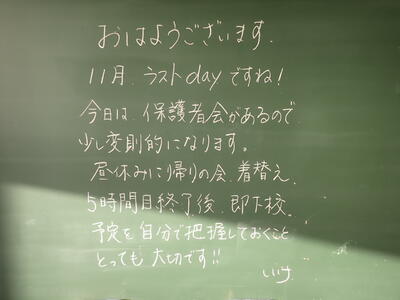 おはようございます.
11月.ラストdayですね!
今日は、保護者会があるので、
少し変則的になります。
昼休みに帰りの会、着替え、
5時間目終了後、即下校。
予定を自分で把握しておくこと
とっても大切です!!